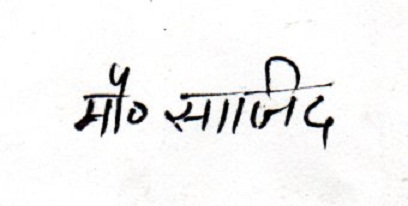 मौ० साजिद